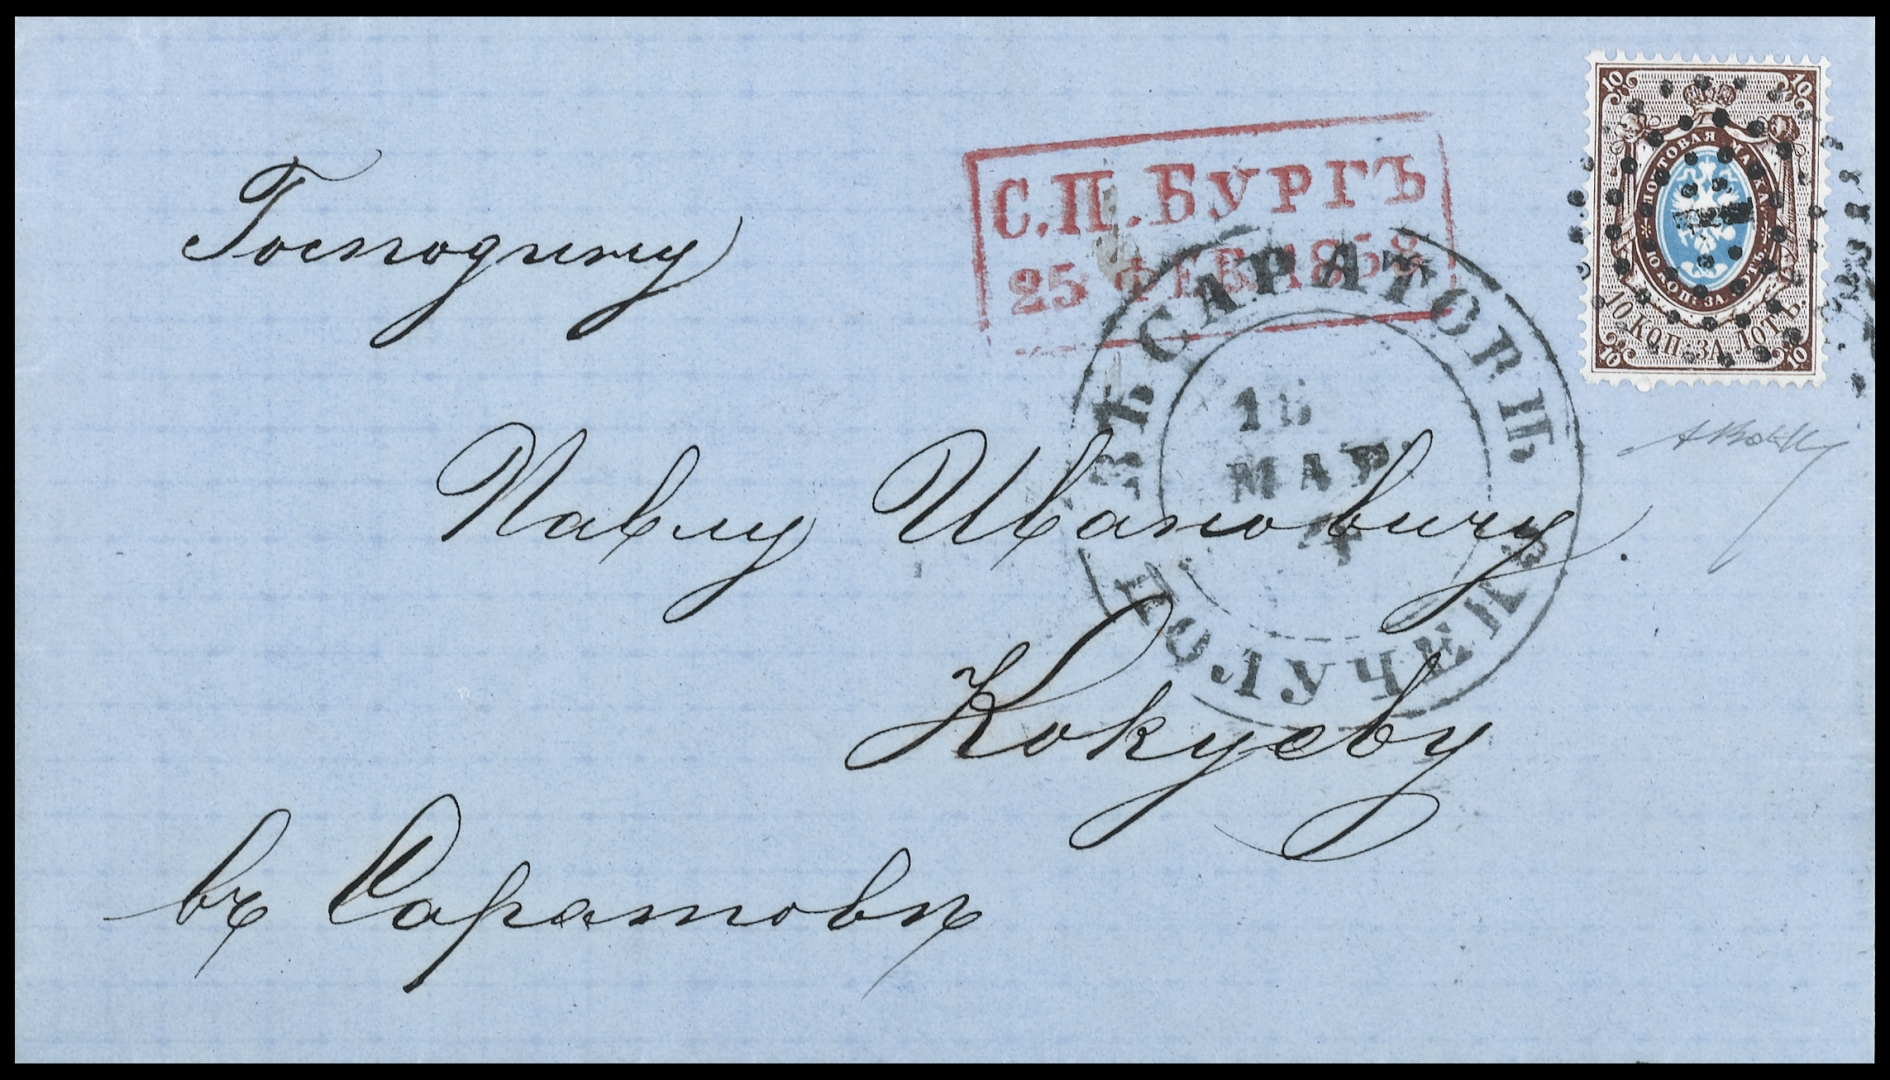 С.П.БУРГЪ
25 ФЕВ. 1858
10 10
ПОЧТОВАЯ МАРКА
10 КОП: ЗА ЛОТЪ
10 КОП: ЗА ЛОТЪ
10 10
1
Господину
ВЪ САРАТОВѢ
МАР.
4
ПОЛУЧЕНО
Павлу Ивановичу
Кокуеву
въ Саратовѣ